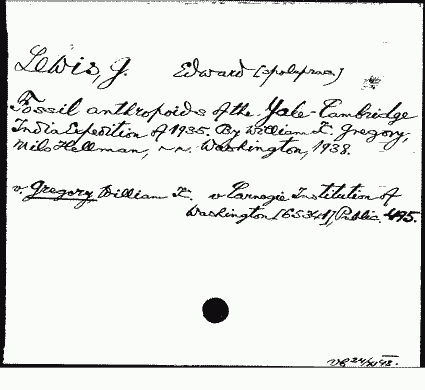 Lewis, G. Edward [spoluprac.]
Fossil anthropoids of the Yale-Cambridge
India Expedition of 1935. By William K. Gregory,
Milo Hellman, ~ ~. Washington, 1938.
v. Gregory William K. v Carnegie Institution of
Washington [65341], Public. 495.